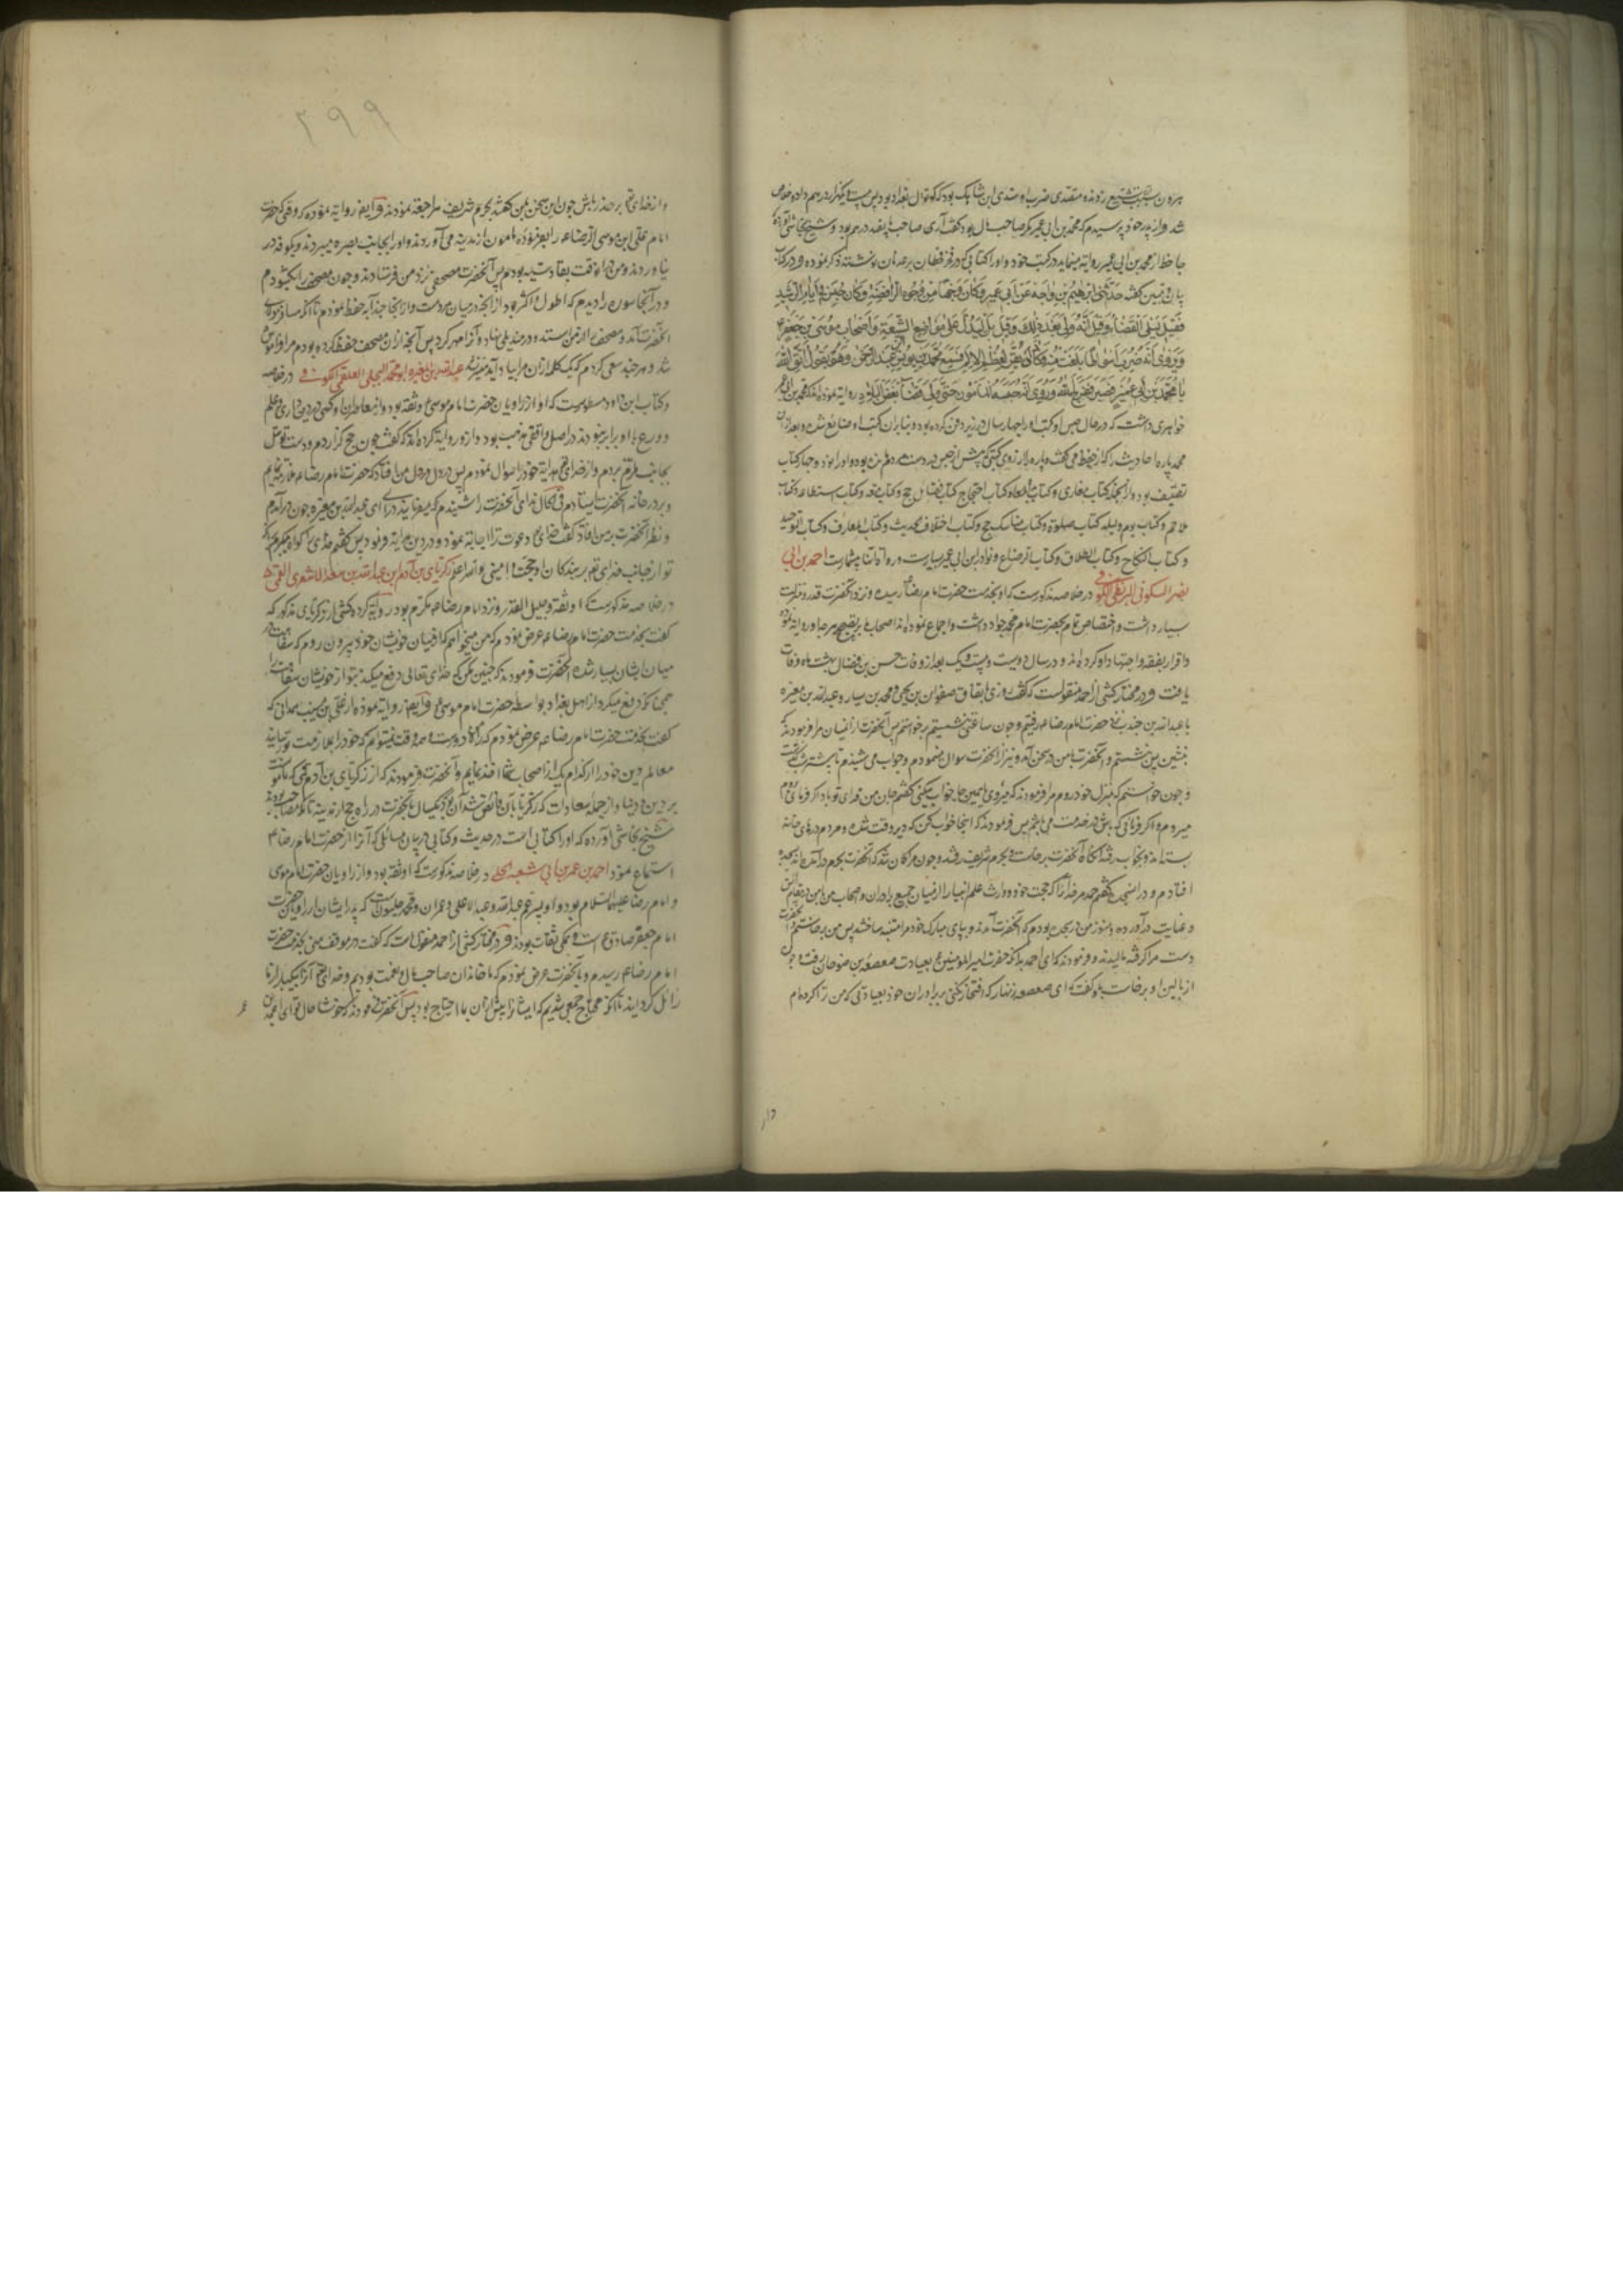 هرون بسبب تشیع زدند و متصدی ضرب او سندی ابن شاهک بود که کوتوال بغداد بود پس صد و بیست و یکهزار درهم داد و خلاص
شد و از پدر خود پرسیدم که محمد بن ابی عمیر مکر صاحب مال بود گفت آری صاحب پانصد درهم بود و شیخ نجاشی آورده که
جاحظ از محمد بن ابی عمیر روایه مینماید در کتب خود و او را در کتابی که در فخر قحطان بر عدنان نوشته ذکر نموده و در کتاب
بیان و تبیین گفته حدثنی ابرهیم بن داحة عن ابن ابی عمیر وکان وجهاً من وجوه الرافضة وکان حبس فی ایام الرشید
فقیل لیلی القضاء وقیل انه ولی بعد ذلک وقیل بل لیدل علی مواضع الشیعة واصحاب موسی بن جعفر ع
وروی انه ضرب اسواطا بلغت منه فکاد ان یقر لعظم الالم فسمع محمد بن یونس بن عبد الرحمن وهو یقول اتق الله
یا محمد بن ابی عمیر فصبر ففرج الله وروی انه حبسه المامون حتی ولاه قضاء بعض البلاد و روایه نموده‌اند که محمد بن ابی عمیر
خواهری داشت که در حال حبس او کتب او را چهار سال در زیر دفن کرده بود و بنابر آن کتب او ضایع شده و بعد از آن
محمد پاره احادیث را که از حفظ می گفت و پاره را از روی کتبی که پیش از حبس در دست مردم مانده بود و او را نود و چهار کتاب
تصنیف بود و از آنجمله کتاب مغازی و کتاب بداء و کتاب احتجاج کتاب فضائل حج و کتاب متعه و کتاب استطاعه و کتاب
ملاحم و کتاب یوم و لیله کتاب صلوة و کتاب مناسک حج و کتاب اختلاف حدیث و کتاب المعارف و کتاب التوحید
و کتاب النکاح و کتاب الطلاق و کتاب الرضاع و نوادر ابن ابی عمیر بسیارست و رواة آنها بیشمارست احمد بن ابی
نصر السکونی البزنطی الکوفی در خلاصه مذکورست که او بخدمت حضرت امام رضا ع رسیده و نزد آنحضرت قدر و منزلت
بسیار داشت و اختصاص تمام بحضرت امام محمد جواد داشت و اجماع نموده‌اند اصحاب ما بر تصحیح هر چه او روایه نموده
و اقرار بفقه و اجتهاد او کرده‌اند و در سال دویست و بیست و یک بعد از وفات حسن بن فضال بهشت ماه وفات
یافت و در مختار کشی از احمد منقولست که گفت روزی باتفاق صفوان بن یحیی و محمد بن سنان و عبدالله بن مغیره
یا عبدالله بن جندب نزد حضرت امام رضا ع رفتیم و چون ساعتی نشستیم برخواستیم پس آنحضرت از انمیان مرا فرمودند که
بنشین پس نشستم و آنحضرت با من در سخن آمد و نیز از آنحضرت سوال مینمودم و جواب می شنیدم تا بیشتر شب گذشت
و چون خواستم که بمنزل خود روم مرا فرمودند که میروی یا همین جا خواب میکنی گفتم جان من فدای تو باد اگر فرمائی که بروم
میروم و اگر فرمائی که باش در خدمت می باشم پس فرمودند که اینجا خواب کن که دیر وقت شده و مردم درهای خانه
بسته‌اند و بخواب رفته‌اند آنگاه آنحضرت برخاست و بحرم شریف رفتند و چون مرا گمان شد که آنحضرت بحرم درآمدند بسجده
افتادم و در آن سجده گفتم حمد مر خدا را که حجت خود و وارث علم انبیا را از میان جمیع برادران و اصحاب من با من در مقام انس
و عنایت درآورده و هنوز من در سجده بودم که آنحضرت آمدند و بپای مبارک خود مرا متنبه ساختند پس من برخاستم و آنحضرت
دست مرا گرفته مالیدند و فرمودند که ای احمد بدانکه حضرت امیر المومنین ع بعیادت صعصعة بن صوحان رفت و چون
از بالین او برخاست باو گفت که ای صعصعه زنهار که افتخار نکنی بر برادران خود بعیادتی که من ترا کرده‌ام
وار
۲۹۹
و از خدای تع بر حذر باش چون این سخن بمن گفتند بحرم شریف مراجعه نمودند و ایضا روایه نموده که وقتی که حضرت
امام علی ابن موسی الرضا ع را بفرموده مامون از مدینه می آوردند و او را بجانب بصره میبردند و بکوفه در
نیاوردند و من در آن وقت بقادسیه بودم پس آنحضرت مصحفی نزد من فرستادند و چون مصحف را بگشودم
و در آنجا سوره را دیدم که اطول و اکثر بود از آنچه در میان مردمست و از آنجا چند آیه حفظ نمودم تا آنکه مسافر مولای
آنحضرت آمد و مصحف را از من استد و در مندیلی نهاد و آنرا مهر کرد پس آنچه از آن مصحف حفظ کرده بودم مرا فراموش
شد و هر چند سعی کردم که یک کلمه از آن مرا بیاد آید میسر نشد عبدالله بن المغیره ابو محمد البجلی العلقی الکوفی در خلاصه
و کتاب ابن داود مسطورست که او از راویان حضرت امام موسی ع و ثقه بود و از معاصران او کسی در دین‌داری و علم
و ورع با او برابر نبودند در اصل واقفی مذهب بود و ازو روایه کرده‌اند که گفت چون حج گزاردم و دست توسل
بجانب ملتزم بردم و از خدای تع هدایه خود را سوال نمودم پس در دل من افتاد که حضرت امام رضا ع ملازمه نمایم
و بر در خانه آنحضرت ایستادم فی الحال ندای آنحضرت را شنیدم که میفرمایند درآ ای عبدالله بن مغیره چون درآمدم
و نظر آنحضرت بر من افتاد گفت خدای دعوت ترا اجابه نمود و در دین هدایه فرمود پس گفتم خدای را گواه میگیرم که
تو از جانب خدای تع بر بندگان او حجت و امینی والله اعلم زکریای بن آدم ابن عبدالله بن سعد الاشعری القمی
در خلاصه مذکورست که او ثقه و جلیل القدر و نزد امام رضا ع مکرم بود و روایه کرده کشی از زکریای مذکور که
گفت بخدمت حضرت امام رضا ع عرض نمودم که من میخواهم که از میان خویشان خود بیرون روم که سفاهت در
میان ایشان بسیار شده آنحضرت فرمودند که چنین مکن که خدای تعالی دفع میکند بتو از خویشان سفاهت را
همچنانکه دفع میکرد از اهل بغداد بواسطه حضرت امام موسی ع و ایضا روایه نموده از علی بن مسیب همدانی که
گفت بخدمت حضرت امام رضا ع عرض نمودم که راه من دورست و همه وقت نمیتوانم که خود را بملازمت تو رسانید
معالم دین خود را از کدام یک از اصحاب شما اخذ نمایم و آنحضرت فرمودند که از زکریای بن آدم قمی که مامونست
بر دین و دنیا و از جمله سعادات که زکریا بآن فائق شد آن بود که یکسال بآنحضرت در راه حج از مدینه تا مکه مصاحب بودند
شیخ نجاشی آورده که او را کتابی است در حدیث و کتابی در بیان مسائلی که آنرا از حضرت امام رضا ع
استماع نمود احمد بن عمر بن ابی شعبه الحلبی در خلاصه مذکورست که او ثقه بود و از راویان حضرت امام موسی
و امام رضا علیهما السلام بود و او پسر عم عبدالله و عبد الاعلی و عمران و محمد حلبیون است که پدر ایشان از راویان حضرت
امام جعفر صادق ع است و همگی ثقات بودند و در مختار کشی از احمد منقول است که گفت در موقف منی بخدمت حضرت
امام رضا ع رسیدم و بآنحضرت عرض نمودم که ما خاندان صاحب مال و نعمت بودیم و خدای تع آنرا بیکبار از ما
زائل گردانید تا آنکه محتاج جمعی شدیم که ایشانرا پیش از آن بما احتیاج بود پس آنحضرت فرمودند که خوشا حال تو ای احمد بن
عمر